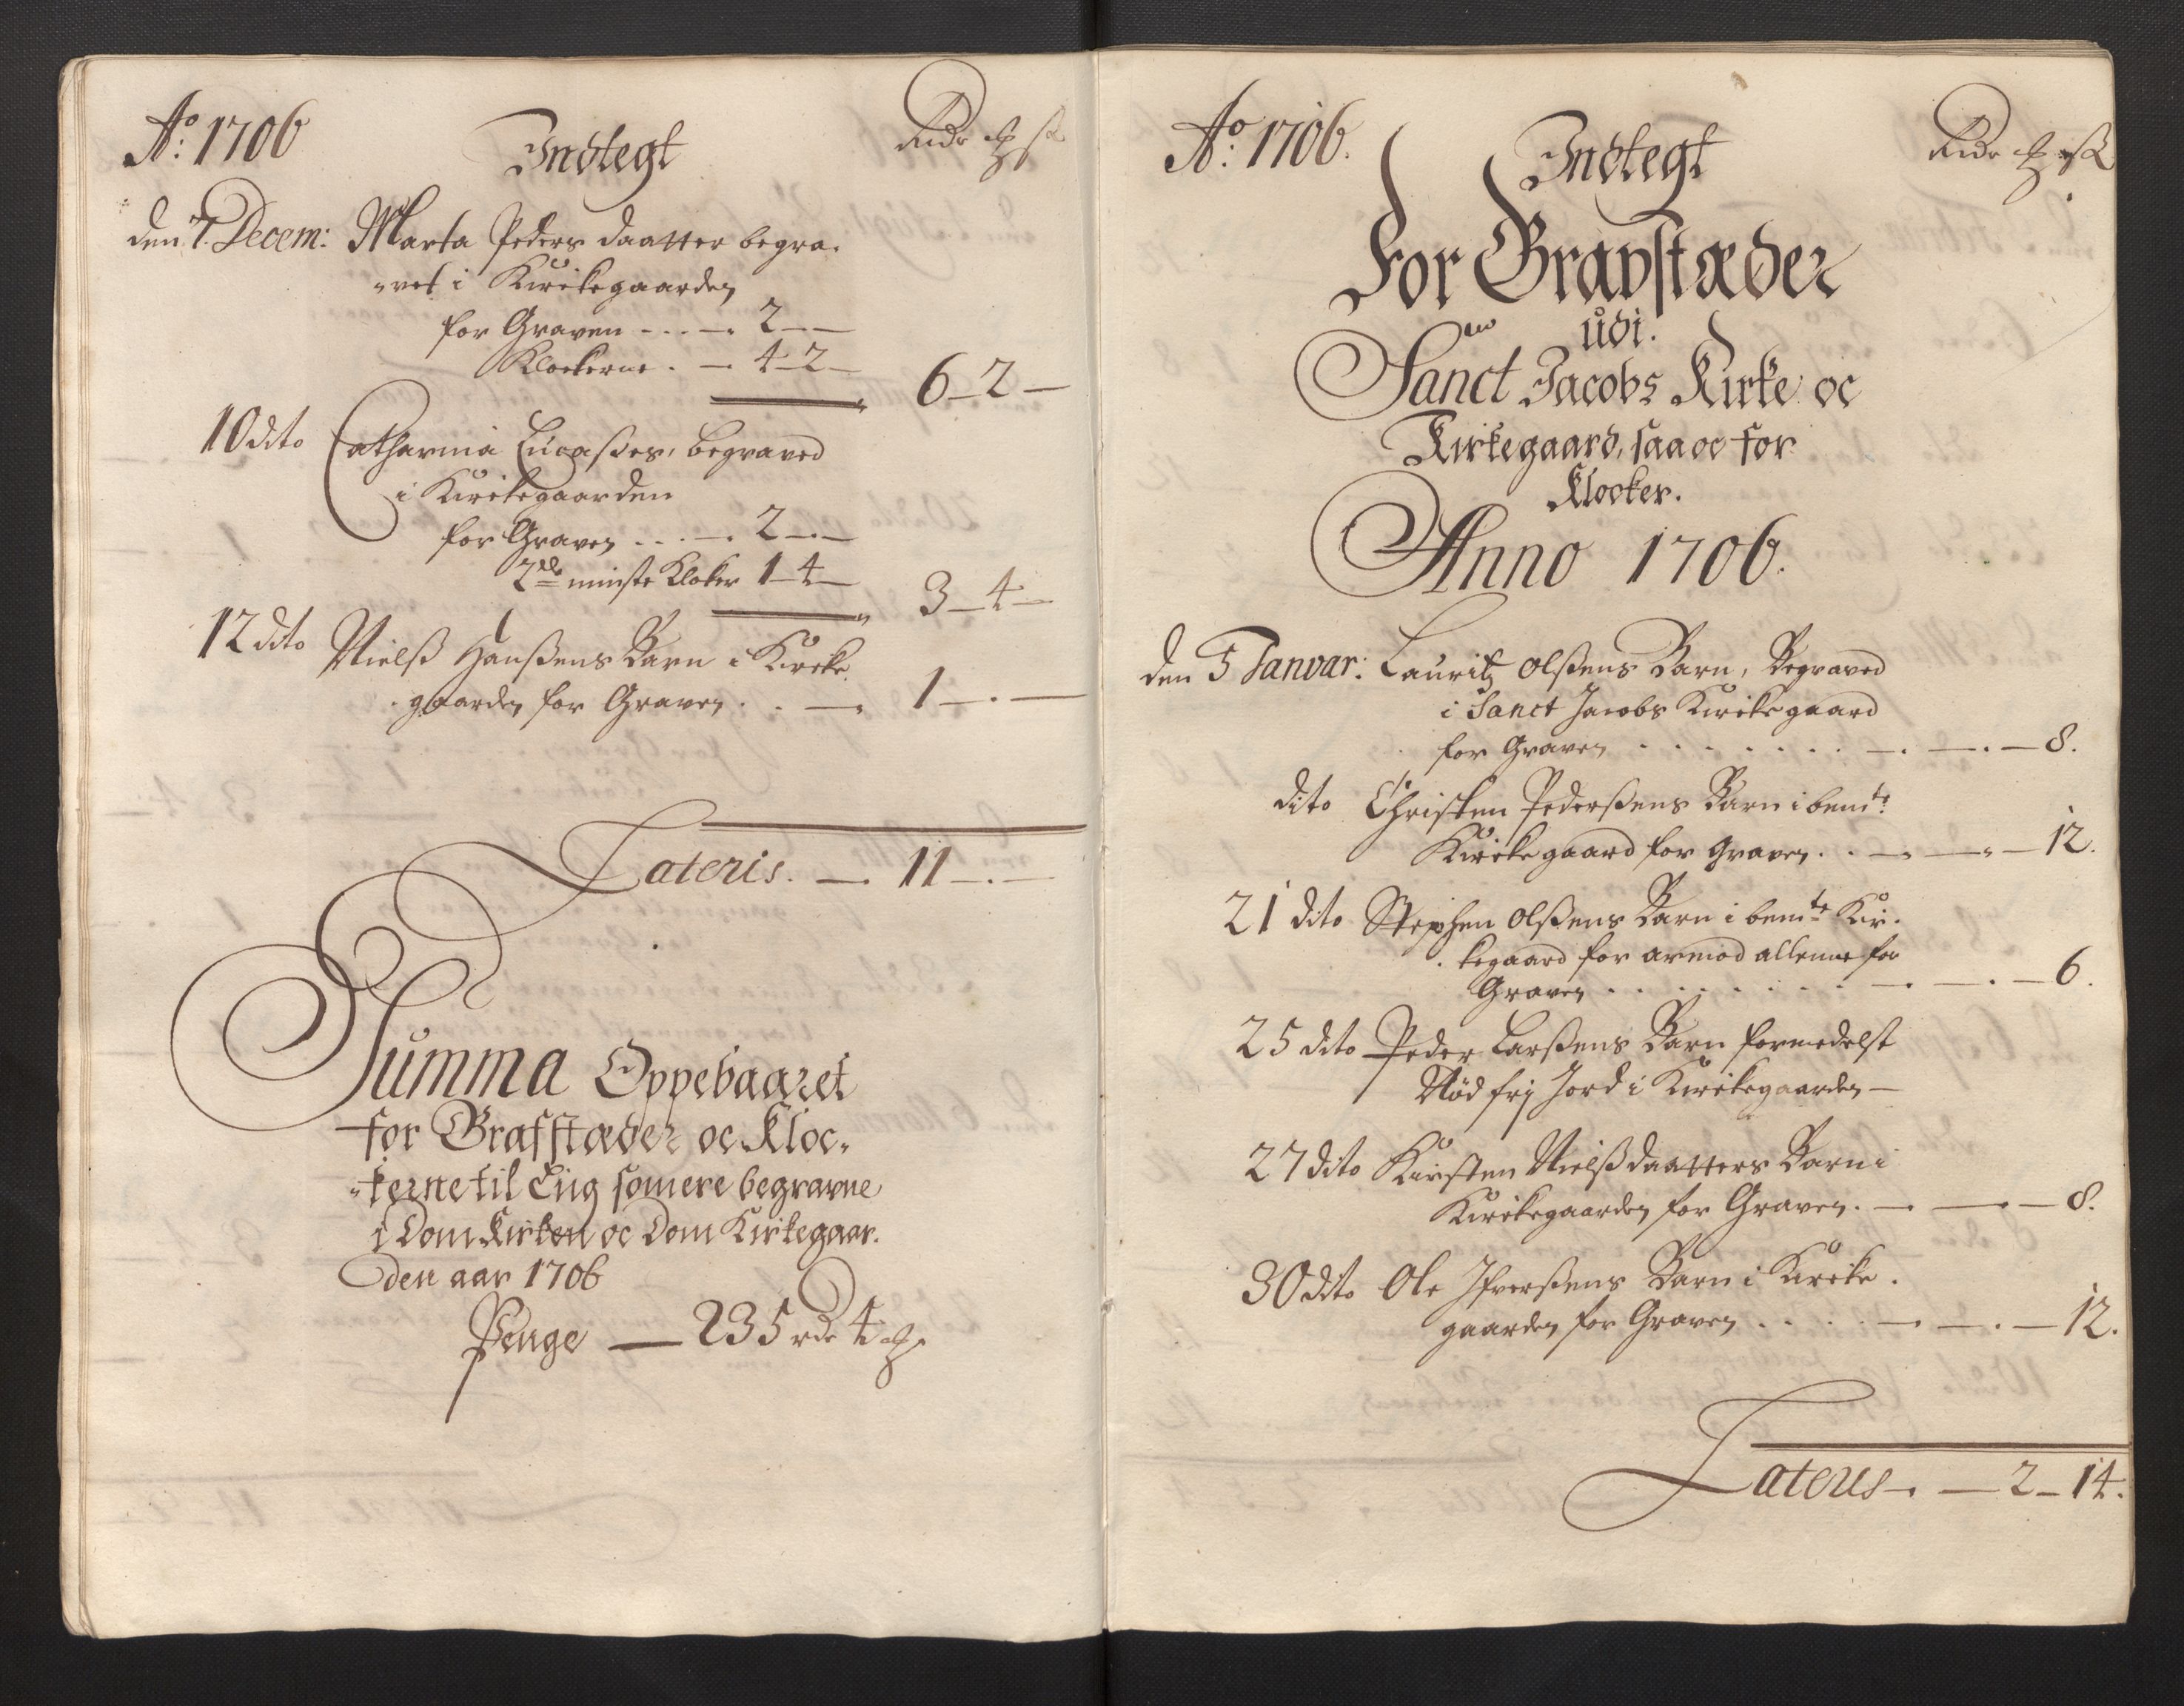 Ao: 1706
Indtegt
Rdr ℳ ß
den 7. Decem: Marta Peders daatter begra-
-vet i Kirkegaarden
for Graven - - - 2 - -
Klockerne . - 4 - 2 -
6 - 2 -
10 dito Catharina Lucasses, begraved
i Kirkegaarden
for Graven - - - 2 - -
2de minste Klocker 1 - 4 -
3 - 4 -
12 dito Nielß Hanßens Barn i Kirke-
gaarden for Graven . . - 1 - . -
Lateris. - 11 - . -
Summa Oppebaaret
for Grafstæder oc Kloc-
-kerne til Liig som ere begravne
i Dom Kirken oc Dom Kirkegaar-
den aar 1706
Penge - 235 rdr 4 ℳ
Ao: 1706.
Indtegt
Rdr ℳ ß
For Gravstæder
udi.
Sanct Jacobs Kirke oc
Kirkegaard, saa oc for
Klocker.
Anno 1706.
den 5 Januar: Lauritz Olßens Barn, Begraved
i Sanct Jacobs Kirkegaard
for Graven . . . . . . . - . - . - 8.
dito Christen Pederßens Barn i bemte:
Kirkegaard for Graven . . - - - 12.
21 dito Stephen Olßens Barn i bemte Kir-
kegaard for armod allenne for
Graven . . . . . . . - . - . - 6.
25 dito Peder Larßens Barn formedelst
Nød frj Jord i Kirkegaarden -
27 dito Kirsten Nielßdaatters Barn i
Kirkegaarden for Graven . - - - 8.
30 dito Ole Jfverßens Barn i Kirke-
gaarden for Graven . . . . - - . - 12.
Lateris - . - 2 - 14.